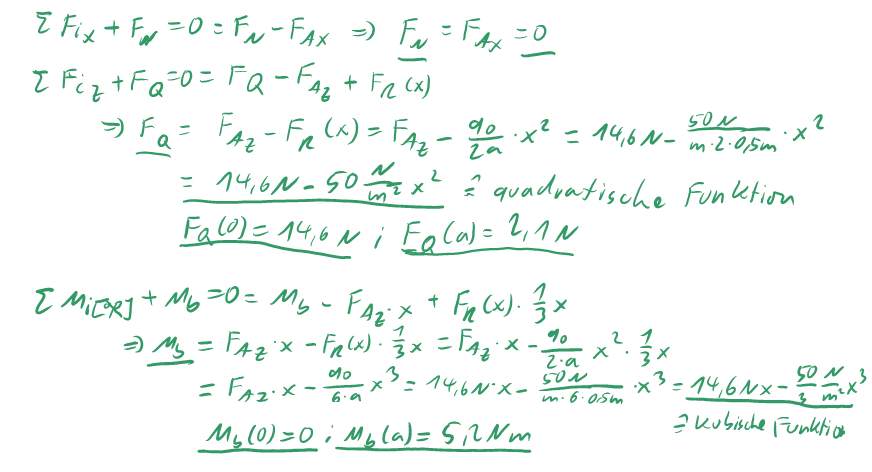 Σ F_ix + F_N = 0 = F_N - F_Ax ⇒ F_N = F_Ax = 0
Σ F_iz + F_Q = 0 = F_Q - F_Az + F_R(x)
⇒ F_Q = F_Az - F_R(x) = F_Az - q0/2a · x² = 14,6N - 50N/m·2·0,5m · x²
= 14,6N - 50 N/m² x² ≙ quadratische Funktion
F_Q(0) = 14,6N ; F_Q(a) = 2,1N
Σ M_i[SR] + M_b = 0 = M_b - F_Az · x + F_R(x) · 1/3 x
⇒ M_b = F_Az · x - F_R(x) · 1/3 x = F_Az · x - q0/2·a x² · 1/3 x
= F_Az · x - q0/6·a x³ = 14,6N · x - 50N/m·6·0,5m · x³ = 14,6Nx - 50/3 N/m² x³
≙ kubische Funktion
M_b(0) = 0 ; M_b(a) = 5,2Nm